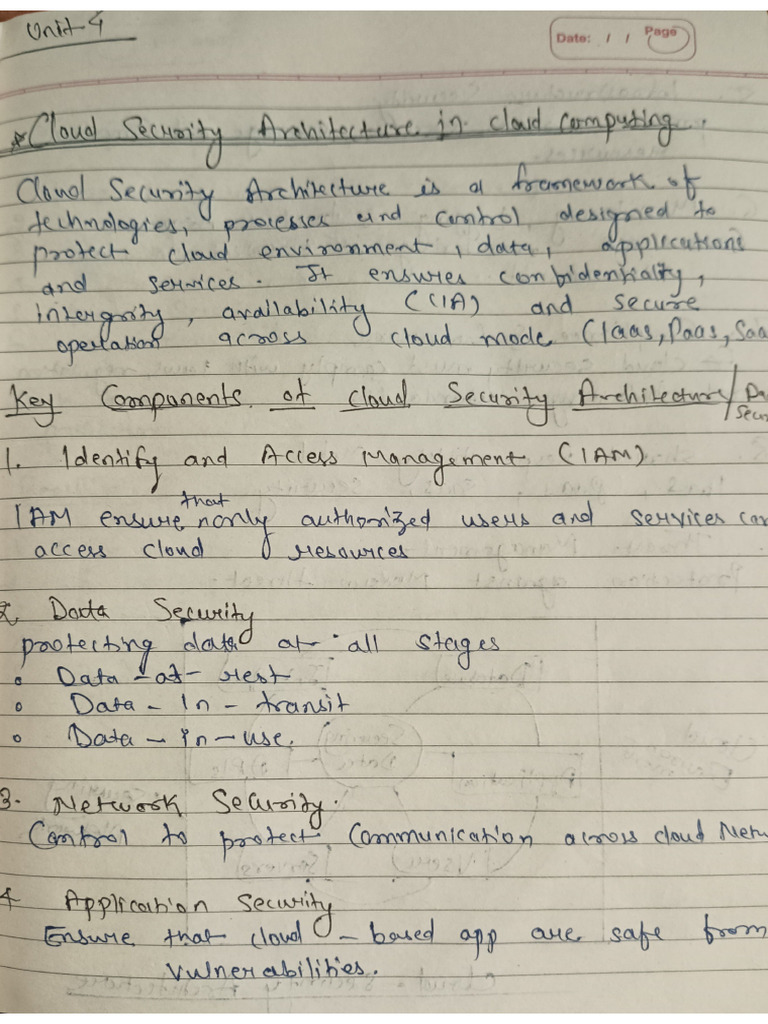 Unit-4
Date: / / Page
*Cloud Security Architecture in cloud computing.
Cloud Security Architecture is a framework of
technologies, processes and control designed to
protect cloud environment, data, applications
and services. It ensures confidentiality,
intergrity, availability (CIA) and secure
opertation across cloud mode (Iaas, Paas, Saa
Key Components of cloud Security Architecture/
Secu
1. Identify and Access Management (IAM)
that
IAM ensure only authorized users and services can
access cloud resources
2. Data Security
protecting data at all stages
• Data-at-rest
• Data-In-transit
• Data-in-use.
3. Network Security.
Control to protect Communication across cloud Netw
4 Application Security
Ensure that cloud-based app are safe from
vulnerabilities.